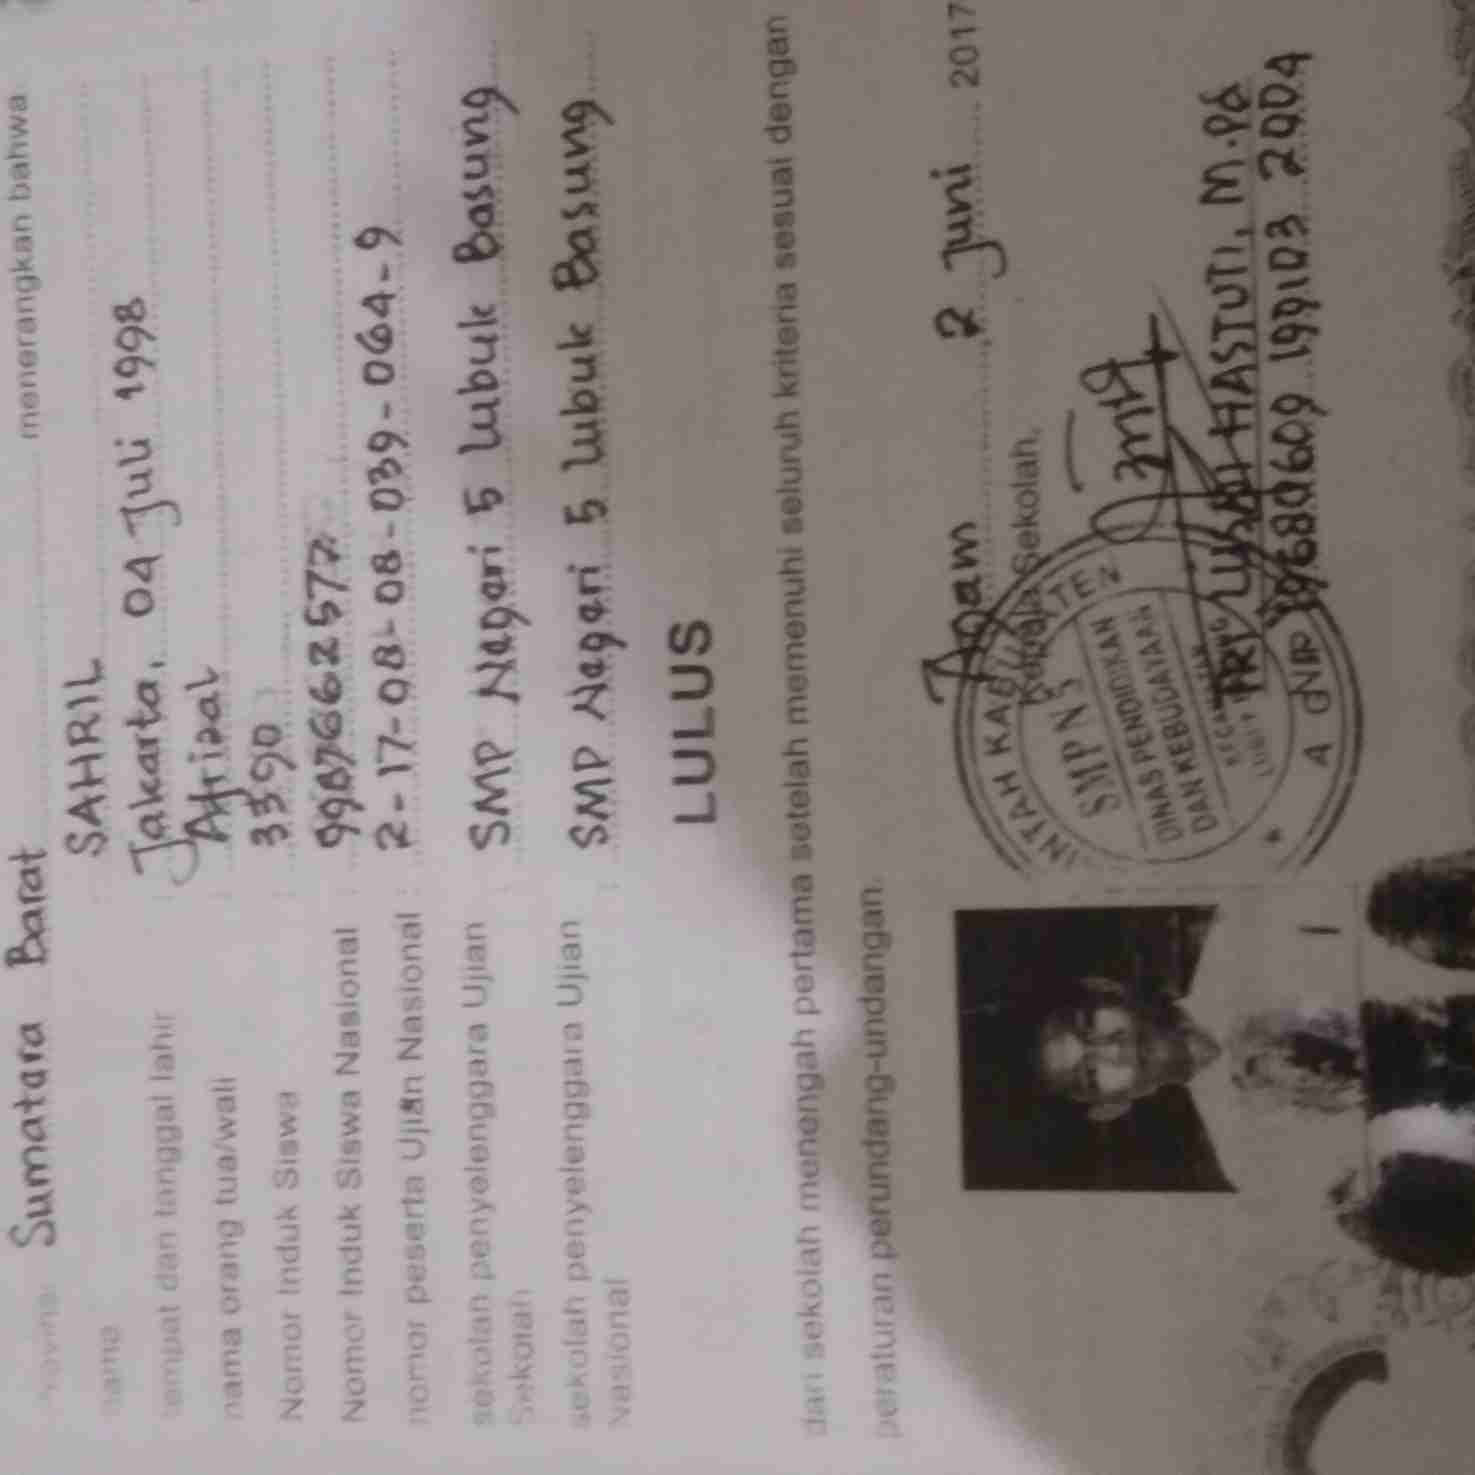 Provinsi Sumatara Barat menerangkan bahwa
nama : SAHRIL
tempat dan tanggal lahir : Jakarta, 04 Juli 1998
nama orang tua/wali : Afrizal
Nomor Induk Siswa : 3390
Nomor Induk Siswa Nasional : 9987662577
nomor peserta Ujian Nasional : 2-17-08-08-039-064-9
sekolah penyelenggara Ujian : SMP Negeri 5 Lubuk Basung
Sekolah
sekolah penyelenggara Ujian : SMP Negeri 5 Lubuk Basung
Nasional
LULUS
dari sekolah menengah pertama setelah memenuhi seluruh kriteria sesuai dengan
peraturan perundang-undangan.
Agam, 2 Juni 2017
Kepala Sekolah,
SMP N 5
DINAS PENDIDIKAN
DAN KEBUDAYAAN
TRI LUSI HASTUTI, M.Pd
19680609 199103 2004